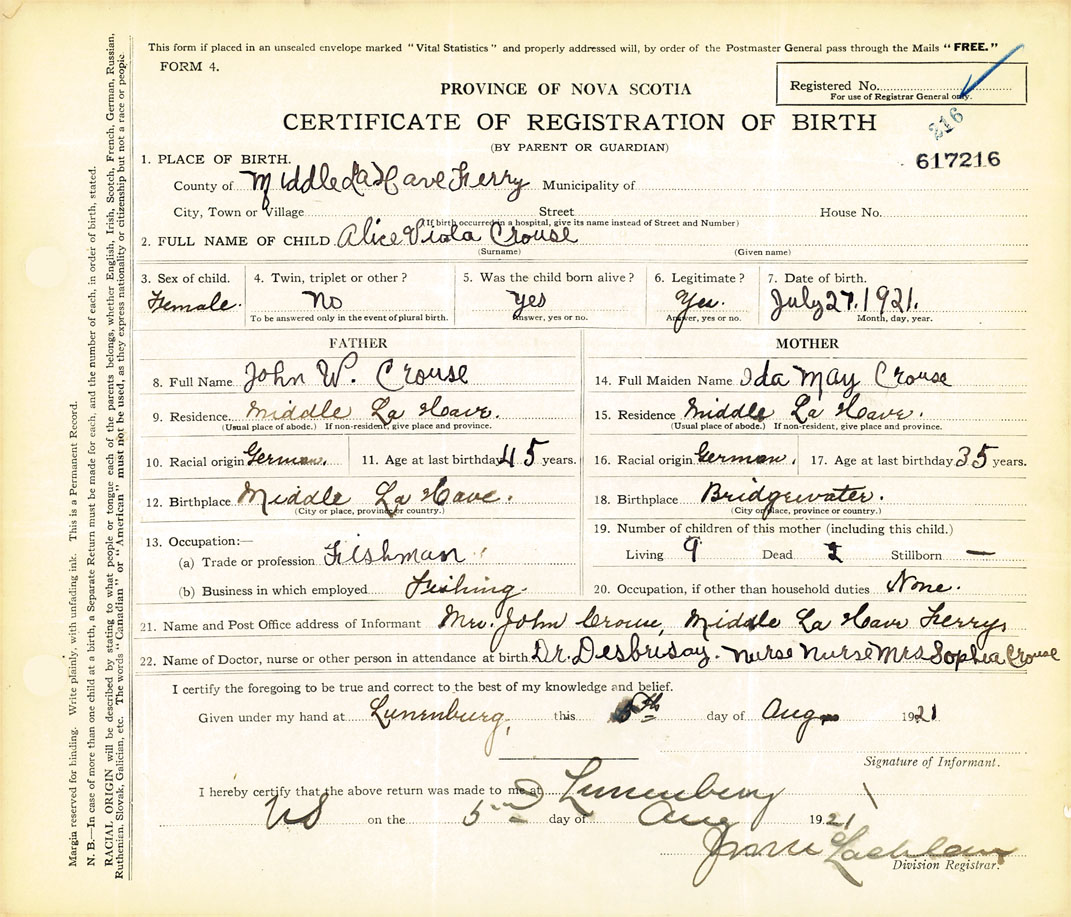 This form if placed in an unsealed envelope marked "Vital Statistics" and properly addressed will, by order of the Postmaster General pass through the Mails "FREE."
FORM 4.
Registered No.
For use of Registrar General only.
PROVINCE OF NOVA SCOTIA
216
CERTIFICATE OF REGISTRATION OF BIRTH
(BY PARENT OR GUARDIAN)
617216
1. PLACE OF BIRTH.
County of Middle La Have Ferry Municipality of
City, Town or Village Street House No.
(If birth occurred in a hospital, give its name instead of Street and Number)
2. FULL NAME OF CHILD Alice Viola Crouse
(Surname) (Given name)
3. Sex of child. 4. Twin, triplet or other? 5. Was the child born alive? 6. Legitimate? 7. Date of birth.
Female. No Yes Yes. July 27. 1921.
To be answered only in the event of plural birth. Answer, yes or no. Answer, yes or no. Month, day, year.
FATHER MOTHER
8. Full Name John W. Crouse 14. Full Maiden Name Ida May Crouse
9. Residence. Middle La Have. 15. Residence Middle La Have.
(Usual place of abode.) If non-resident, give place and province. (Usual place of abode.) If non-resident, give place and province.
10. Racial origin German. 11. Age at last birthday 45 years. 16. Racial origin German. 17. Age at last birthday 35 years.
12. Birthplace Middle La Have. 18. Birthplace Bridgewater.
(City or place, province or country.) (City or place, province or country.)
13. Occupation:— 19. Number of children of this mother (including this child.)
(a) Trade or profession Fishman Living 9 Dead Stillborn —
(b) Business in which employed Fishing 20. Occupation, if other than household duties None.
21. Name and Post Office address of Informant Mrs. John Crouse, Middle La Have Ferry
22. Name of Doctor, nurse or other person in attendance at birth. Dr. Desbrisay. Nurse Nurse Mrs Sophia Crouse
I certify the foregoing to be true and correct to the best of my knowledge and belief.
Given under my hand at Lunenburg, this 5th day of Aug 1921
Signature of Informant.
I hereby certify that the above return was made to me at Lunenburg
NS on the 5 day of Aug 1921
Lachlan
Division Registrar.
Margin reserved for binding. Write plainly, with unfading ink. This is a Permanent Record.
N. B.—In case of more than one child at a birth, a Separate Return must be made for each, and the number of each, in order of birth, stated.
RACIAL ORIGIN will be described by stating to what people or tongue each of the parents belongs, whether English, Irish, Scotch, French, German, Russian,
Ruthenian, Slovak, Galician, etc. The words "Canadian" or "American" must not be used, as they express nationality or citizenship but not a race or people